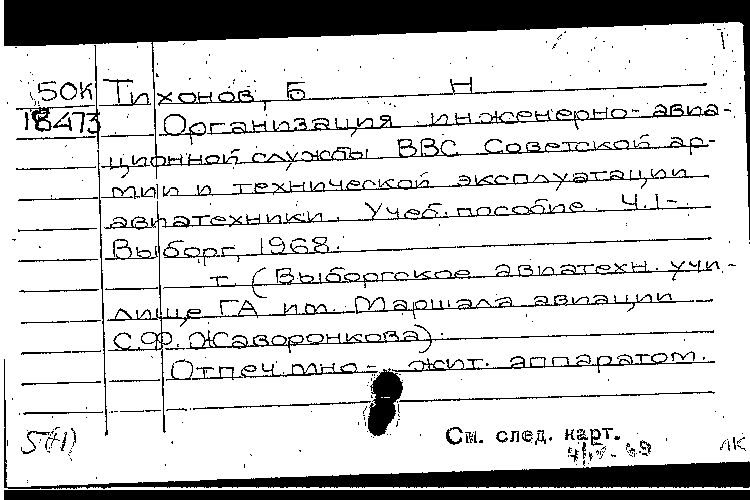 50К Тихонов, Б Н
18473 Организация инженерно-авиа-
ционной службы ВВС Советской ар-
мии и технической эксплуатации
авиатехники. Учеб. пособие. Ч.1-.
Выборг, 1968.
т. (Выборгское авиатехн. учи-
лище ГА им. Маршала авиации
С.Ф. Жаворонкова).
Отпеч. мно-жит. аппаратом.
См. след. карт.
5(+1)
ЛК